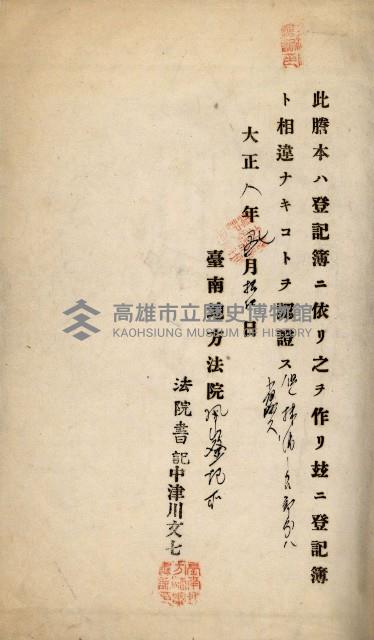 此謄本ハ登記簿ニ依リ之ヲ作リ玆ニ登記簿
ト相違ナキコトヲ認證ス 但抹消
大正八年 月 日
臺南地方法院鳳山登記所
法院書記中津川文七
高雄市立歷史博物館
KAOHSIUNG MUSEUM OF HISTORY